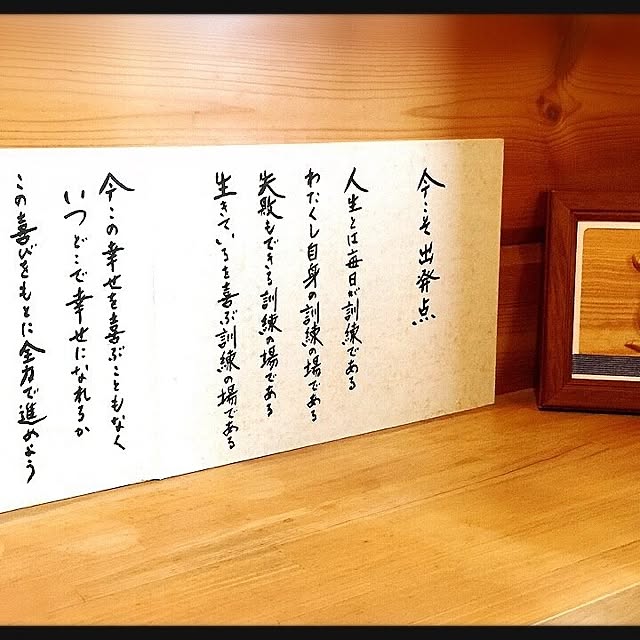 今こそ出発点
人生とは毎日が訓練である
わたくし自身の訓練の場である
失敗もできる訓練の場である
生きているを喜ぶ訓練の場である
今この幸せを喜ぶこともなく
いつどこで幸せになれるか
この喜びをもとに全力で進めよう